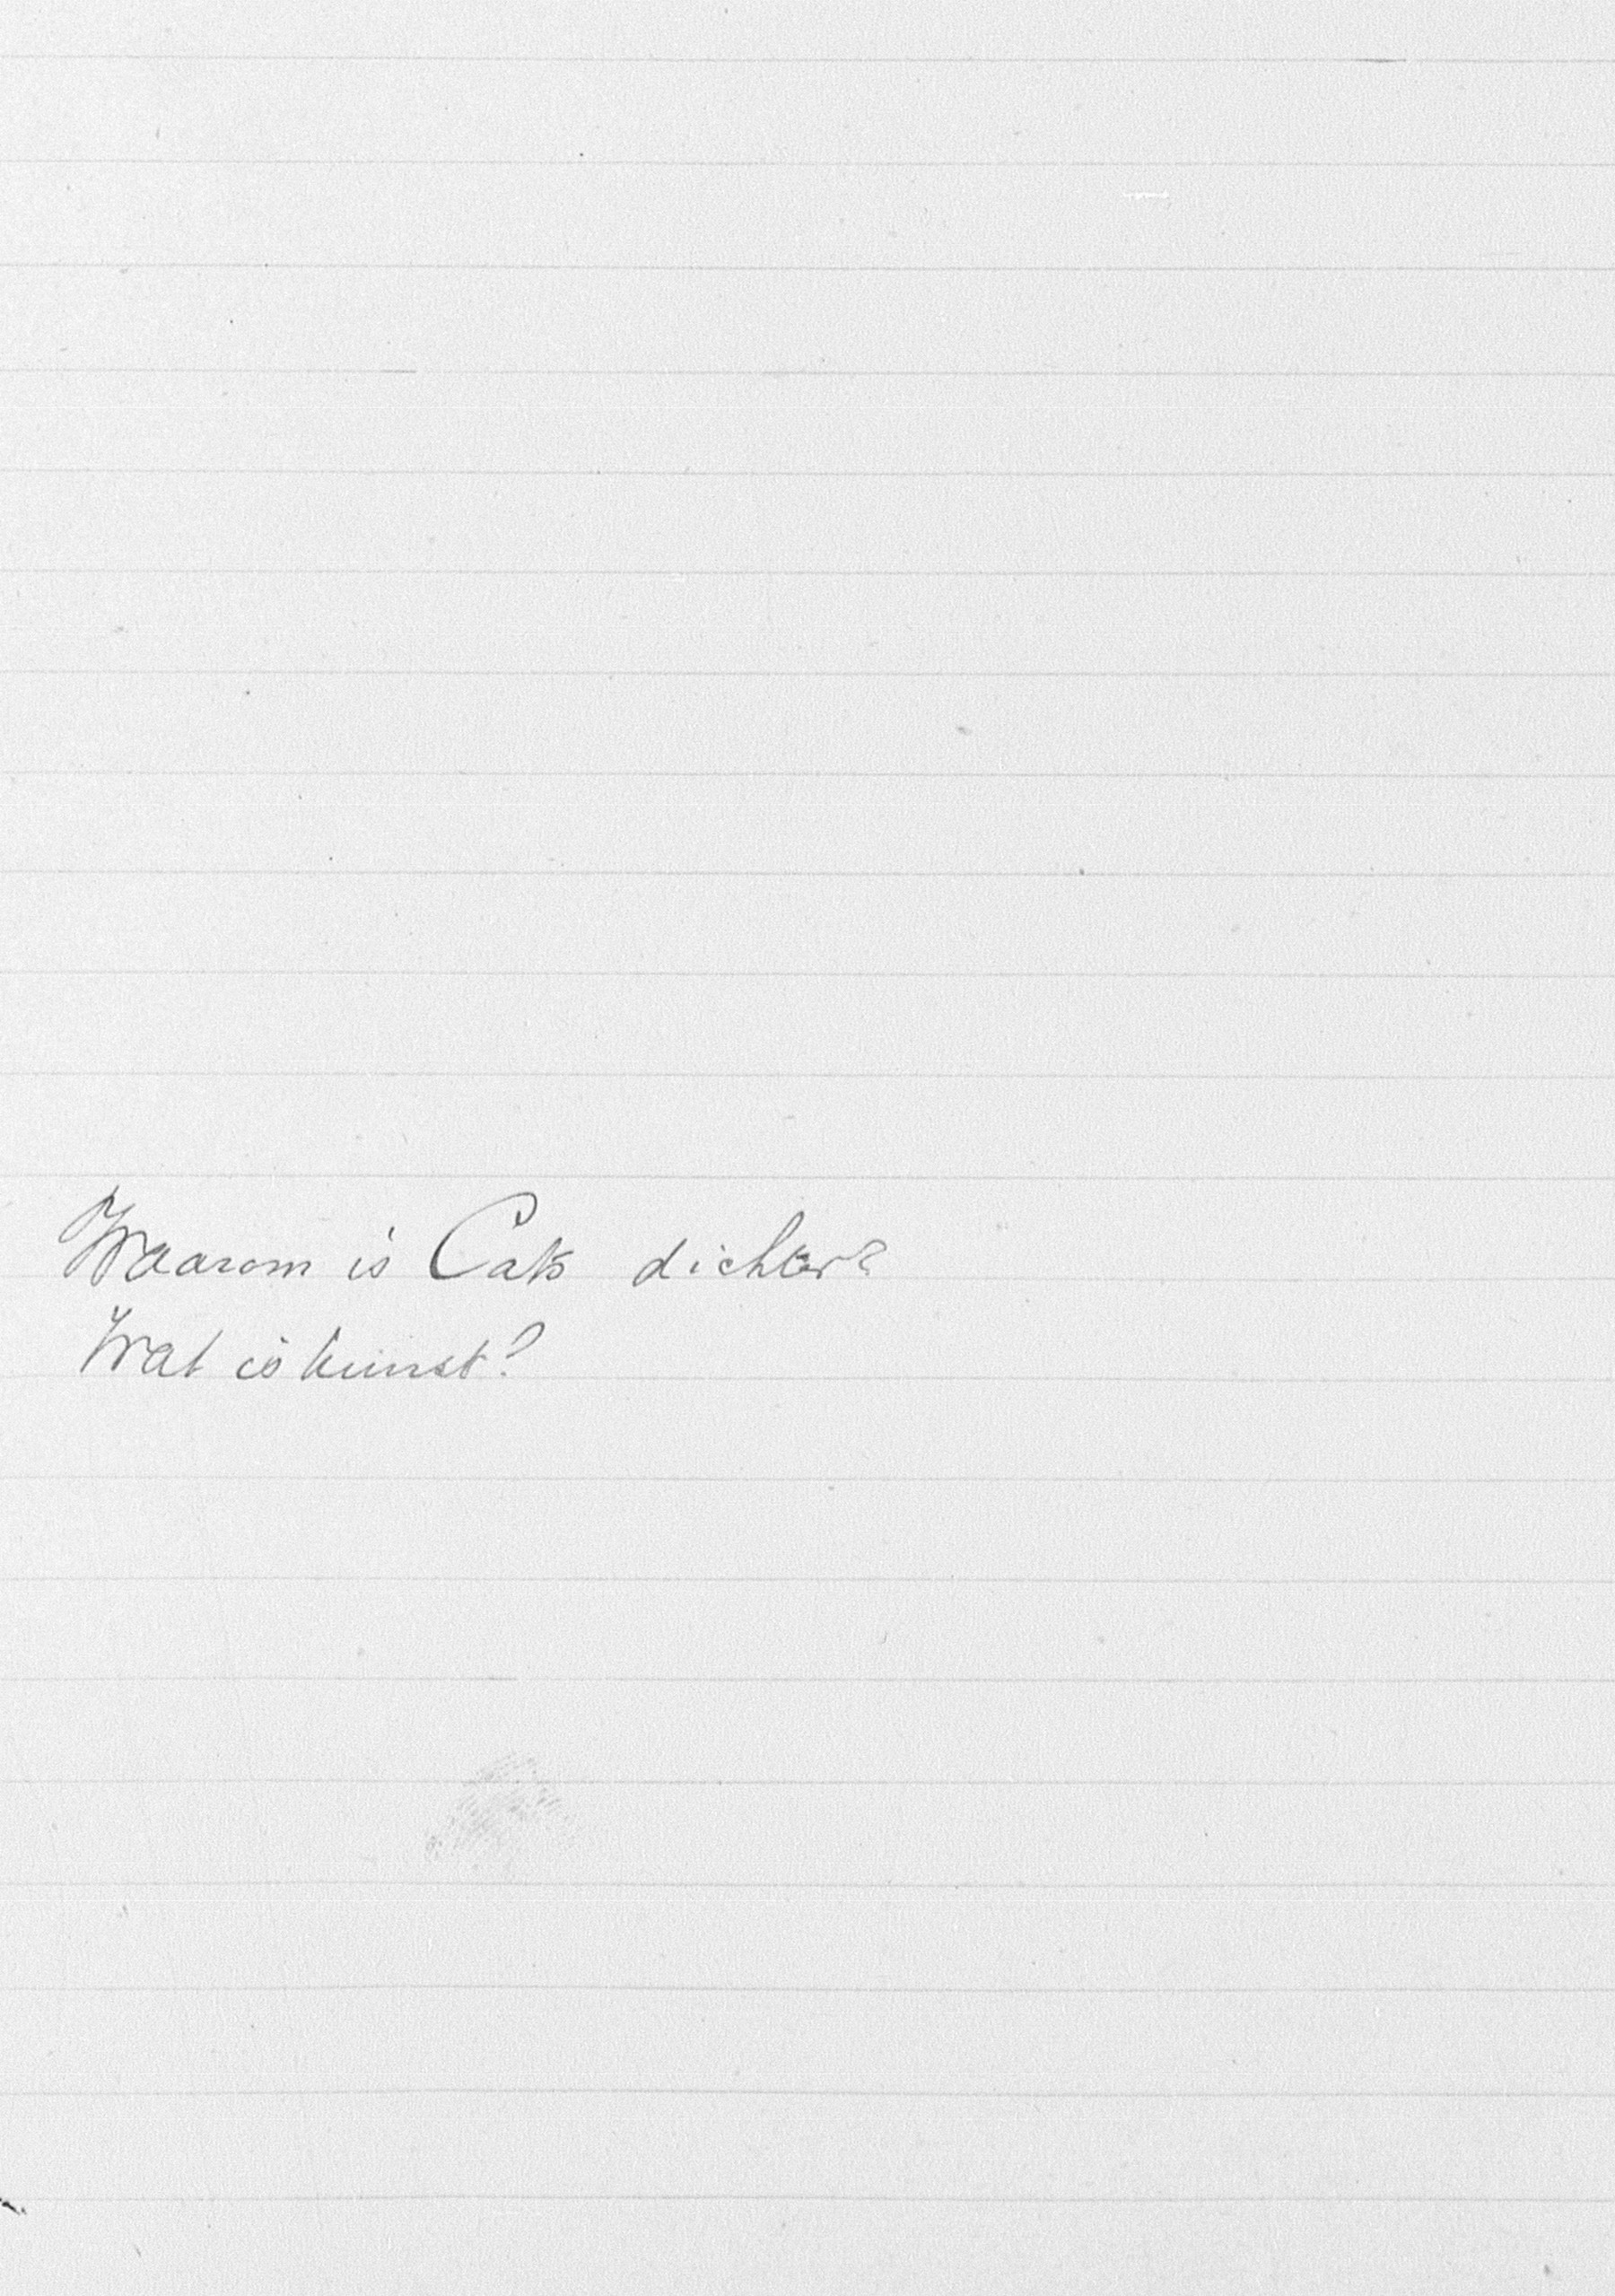 Waarom is Cats dichter?
Wat is kunst?